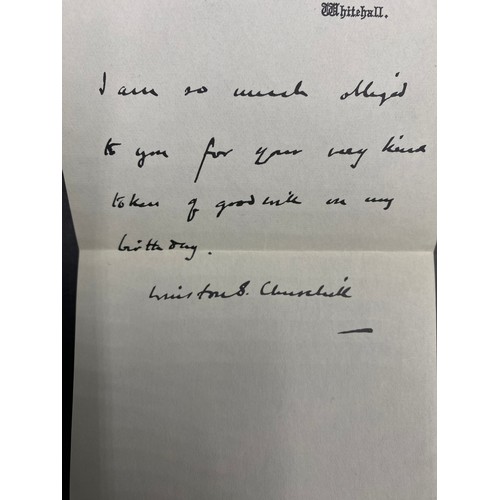 Whitehall.
I am so much obliged
to you for your very kind
token of goodwill on my
birthday.
Winston S. Churchill